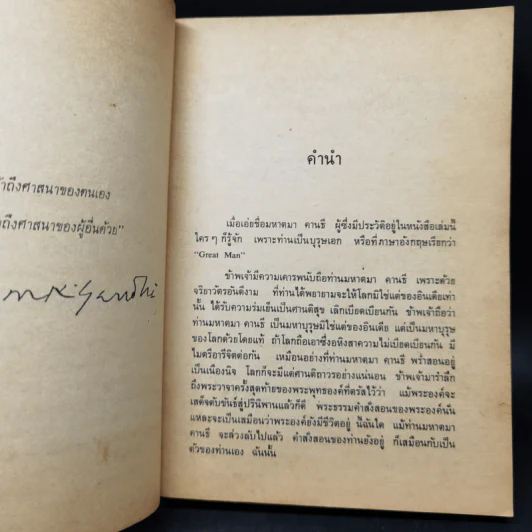 าถึงศาสนาของตนเอง
ถึงศาสนาของผู้อื่นด้วย"
mkgandhi
คำนำ
เมื่อเอ่ยชื่อมหาตมา คานธี ผู้ซึ่งมีประวัติอยู่ในหนังสือเล่มนี้
ใครๆ ก็รู้จัก เพราะท่านเป็นบุรุษเอก หรือที่ภาษาอังกฤษเรียกว่า
"Great Man"
ข้าพเจ้ามีความเคารพนับถือท่านมหาตมา คานธี เพราะด้วย
จริยาวัตรอันดีงาม ที่ท่านได้พยายามจะให้โลกมิใช่แต่ของอินเดียเท่า
นั้น ได้รับความร่มเย็นเป็นศานติสุข เลิกเบียดเบียนกัน ข้าพเจ้าถือว่า
ท่านมหาตมา คานธี เป็นมหาบุรุษมิใช่แต่ของอินเดีย แต่เป็นมหาบุรุษ
ของโลกด้วยโดยแท้ ถ้าโลกถือเอาซึ่งอหิงสาความไม่เบียดเบียนกัน มี
ไมตรีอารีจิตต่อกัน เหมือนอย่างที่ท่านมหาตมา คานธี พร่ำสอนอยู่
เป็นเนืองนิจ โลกก็จะมีแต่ศานติถาวรอย่างแน่นอน ข้าพเจ้ามารำลึก
ถึงพระวาจาครั้งสุดท้ายของพระพุทธองค์ที่ตรัสไว้ว่า แม้พระองค์จะ
เสด็จดับขันธ์สู่ปรินิพานแล้วก็ดี พระธรรมคำสั่งสอนของพระองค์นั่น
แหละจะเป็นเสมือนว่าพระองค์ยังมีชีวิตอยู่ นี้ฉันใด แม้ท่านมหาตมา
คานธี จะล่วงลับไปแล้ว คำสั่งสอนของท่านยังอยู่ ก็เสมือนกับเป็น
ตัวของท่านเอง ฉันนั้น